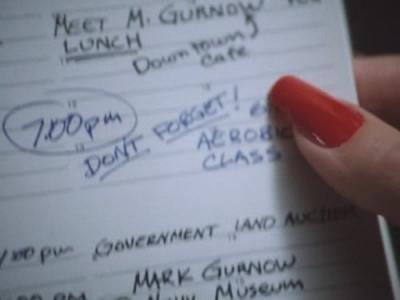 MEET M. GURNOW
LUNCH
Downtown
Cafe
7:00pm
DON'T FORGET!
AEROBIC
CLASS
:00 pm GOVERNMENT LAND AUCTION
MARK GURNOW
Navy Museum